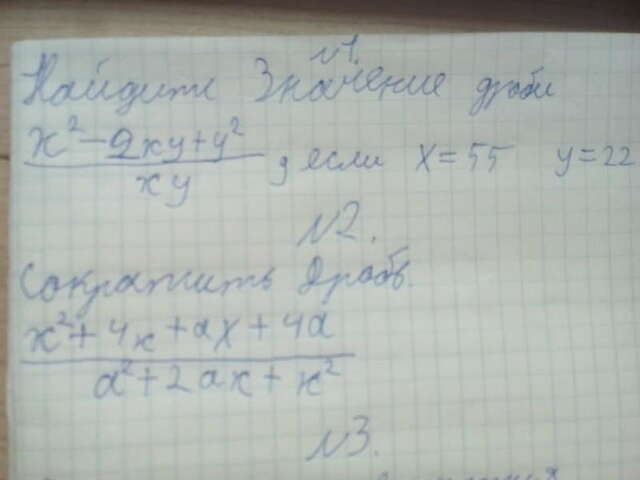 №1.
Найдите значение дроби
x²-2xy+y²
xy
, если x=55 y=22
№2.
Сократить дробь.
x²+4x+ax+4a
a²+2ax+x²
№3.